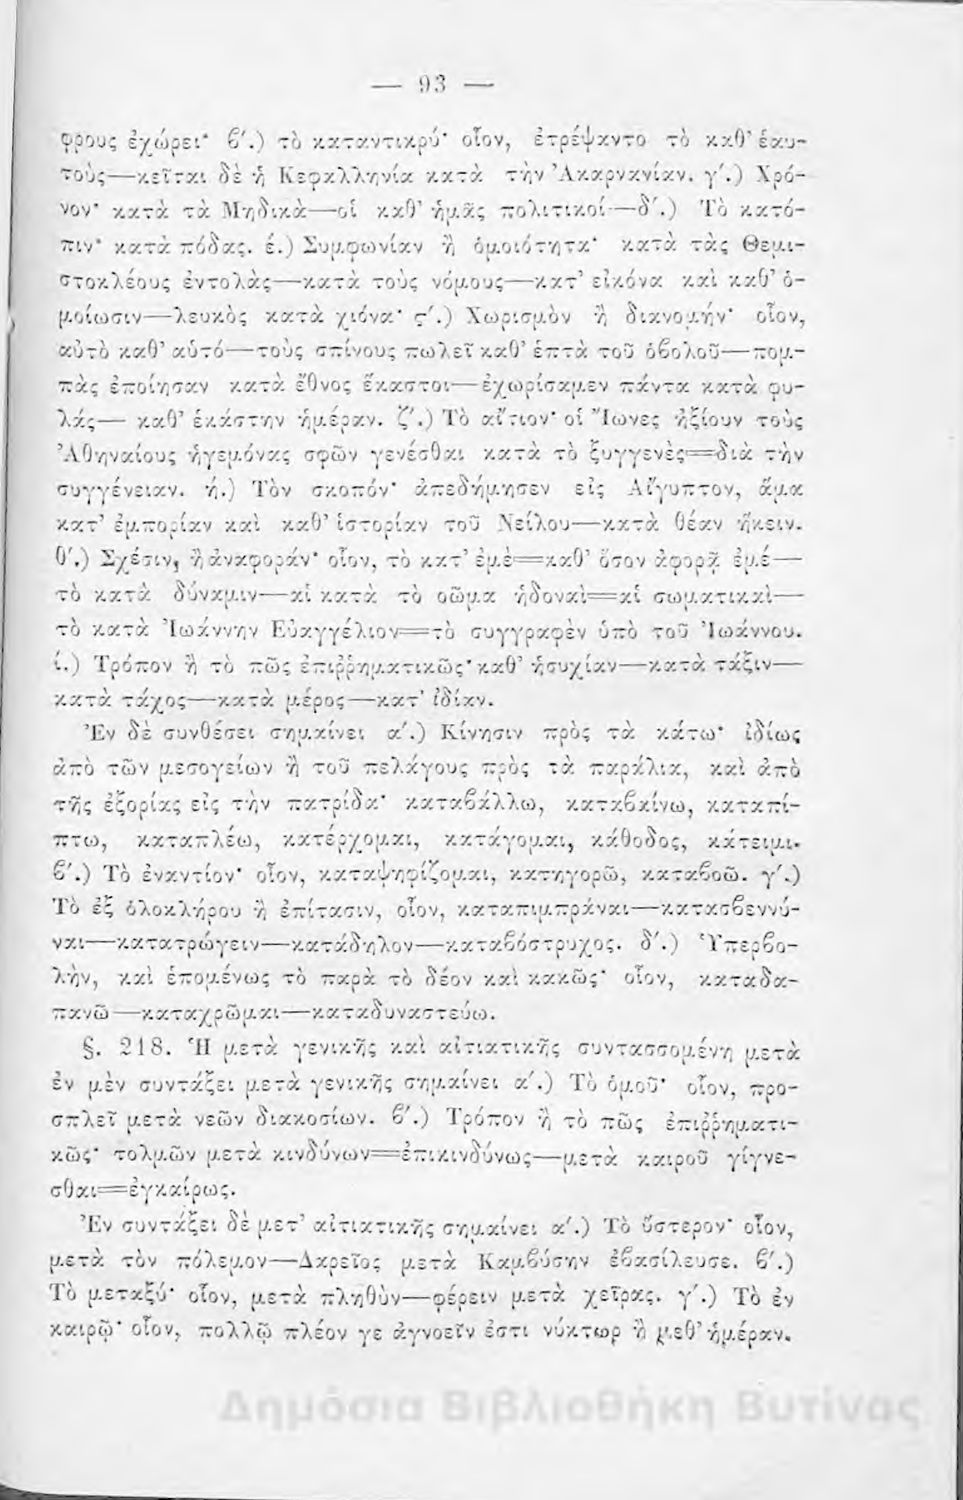 — 93 —
φρους ἐχώρει· ϐ′.) τὸ καταντικρύ· οἷον, ἐτρέψαντο τὸ καθ’ ἑαυ-
τούς—κεῖται δὲ ἡ Κεφαλληνία κατὰ τὴν Ἀκαρνανίαν. γ′.) Χρό-
νον· κατὰ τὰ Μηδικὰ—οἱ καθ’ ἡμᾶς πολιτικοί—δ′.) Τὸ κατό-
πιν· κατὰ πόδας. έ.) Συμφωνίαν ἢ ὁμοιότητα· κατὰ τὰς Θεμι-
στοκλέους ἐντολὰς—κατὰ τοὺς νόμους—κατ’ εἰκόνα καὶ καθ’ ὁ-
μοίωσιν—λευκὸς κατὰ χιόνα· ς′.) Χωρισμὸν ἢ διανομήν· οἷον,
αὐτὸ καθ’ αὑτό—τοὺς σπίνους πωλεῖ καθ’ ἑπτὰ τοῦ ὀϐολοῦ—πομ-
πὰς ἐποίησαν κατὰ ἔθνος ἕκαστοι—ἐχωρίσαμεν πάντα κατὰ φυ-
λάς— καθ’ ἑκάστην ἡμέραν. ζ′.) Τὸ αἴτιον· οἱ Ἴωνες ἠξίουν τοὺς
Ἀθηναίους ἡγεμόνας σφῶν γενέσθαι κατὰ τὸ ξυγγενὲς=διὰ τὴν
συγγένειαν. ή.) Τὸν σκοπόν· ἀπεδήμησεν εἰς Αἴγυπτον, ἅμα
κατ’ ἐμπορίαν καὶ καθ’ ἱστορίαν τοῦ Νείλου—κατὰ θέαν ἥκειν.
θ′.) Σχέσιν, ἢ ἀναφοράν· οἷον, τὸ κατ’ ἐμὲ=καθ’ ὅσον ἀφορᾷ ἐμέ—
τὸ κατὰ δύναμιν—αἱ κατὰ τὸ σῶμα ἡδοναὶ=αἱ σωματικαὶ—
τὸ κατὰ Ἰωάννην Εὐαγγέλιον=τὸ συγγραφὲν ὑπὸ τοῦ Ἰωάννου.
ί.) Τρόπον ἢ τὸ πῶς ἐπιῤῥηματικῶς· καθ’ ἡσυχίαν—κατὰ τάξιν—
κατὰ τάχος—κατὰ μέρος—κατ’ ἰδίαν.
Ἐν δὲ συνθέσει σημαίνει α′.) Κίνησιν πρὸς τὰ κάτω· ἰδίως
ἀπὸ τῶν μεσογείων ἢ τοῦ πελάγους πρὸς τὰ παράλια, καὶ ἀπὸ
τῆς ἐξορίας εἰς τὴν πατρίδα· καταϐάλλω, καταϐαίνω, καταπί-
πτω, καταπλέω, κατέρχομαι, κατάγομαι, κάθοδος, κάτειμι.
ϐ′.) Τὸ ἐναντίον· οἷον, καταψηφίζομαι, κατηγορῶ, καταϐοῶ. γ′.)
Τὸ ἐξ ὁλοκλήρου ἢ ἐπίτασιν, οἷον, καταπιμπράναι—κατασϐεννύ-
ναι—κατατρώγειν—κατάδηλον—καταϐόστρυχος. δ′.) Ὑπερϐο-
λὴν, καὶ ἑπομένως τὸ παρὰ τὸ δέον καὶ κακῶς· οἷον, καταδα-
πανῶ—καταχρῶμαι—καταδυναστεύω.
§. 218. Ἡ μετὰ γενικῆς καὶ αἰτιατικῆς συντασσομένη μετὰ
ἐν μὲν συντάξει μετὰ γενικῆς σημαίνει α′.) Τὸ ὁμοῦ· οἷον, προ-
σπλεῖ μετὰ νεῶν διακοσίων. ϐ′.) Τρόπον ἢ τὸ πῶς ἐπιῤῥηματι-
κῶς· τολμῶν μετὰ κινδύνων=ἐπικινδύνως—μετὰ καιροῦ γίγνε-
σθαι=ἐγκαίρως.
Ἐν συντάξει δὲ μετ’ αἰτιατικῆς σημαίνει α′.) Τὸ ὕστερον· οἷον,
μετὰ τὸν πόλεμον—Δαρεῖος μετὰ Καμϐύσην ἐϐασίλευσε. ϐ′.)
Τὸ μεταξύ· οἷον, μετὰ πληθὺν—φέρειν μετὰ χεῖρας. γ′.) Τὸ ἐν
καιρῷ· οἷον, πολλῷ πλέον γε ἀγνοεῖν ἐστι νύκτωρ ἢ μεθ’ ἡμέραν.
Δημόσια Βιβλιοθήκη Βυτίνας